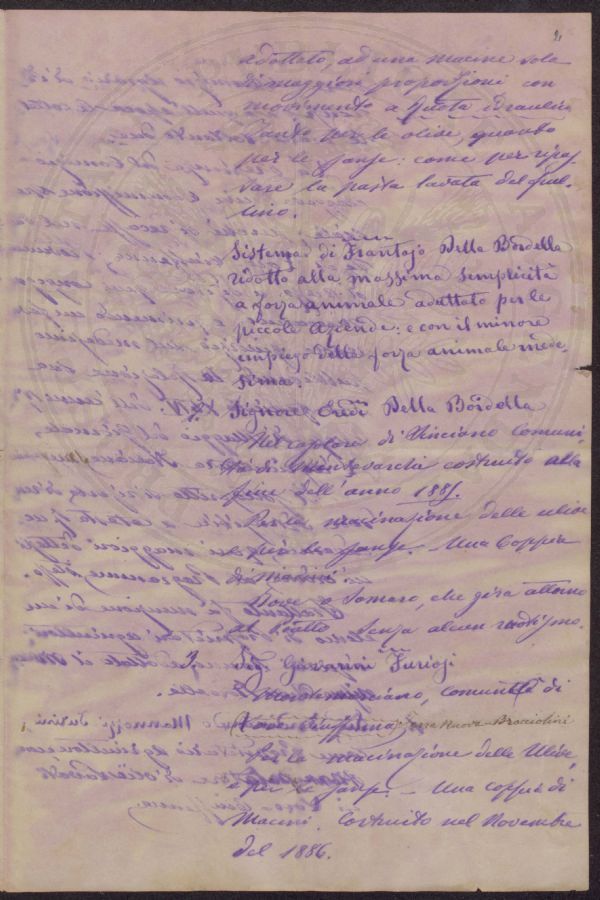 2
adottato, ad una macine sola
di maggiori proporzioni con
movimento a Ruota idraulica
Tanto per le olive, quanto
per le sanse: come per ripas-
sare la pasta lavata del frul-
lino.
Sistema di Frantojo Della Bordella
ridotto alla massima semplicità
a forza animale adattato per le
piccole Aziende: e con il minore
impiego della forza animale mede-
sima.
Signore Eredi Della Bordella
Nel capitore di Vinciano Comuni-
tà di Montevarchi costruito alla
fine dell'anno 1881.
Per la macinazione delle ulive
e per le sanse. Una Coppia
di macine
Bove o Somaro, che gira attorno
al Piatto senza alcun rodismo.
3. Sig. Giovanni Furiosi
comunità di
Terra Nuova-Bracciolini
per la macinazione delle Ulive
e per le sanse. - Una coppia di
Macini. Costruito nel Novembre
del 1886.